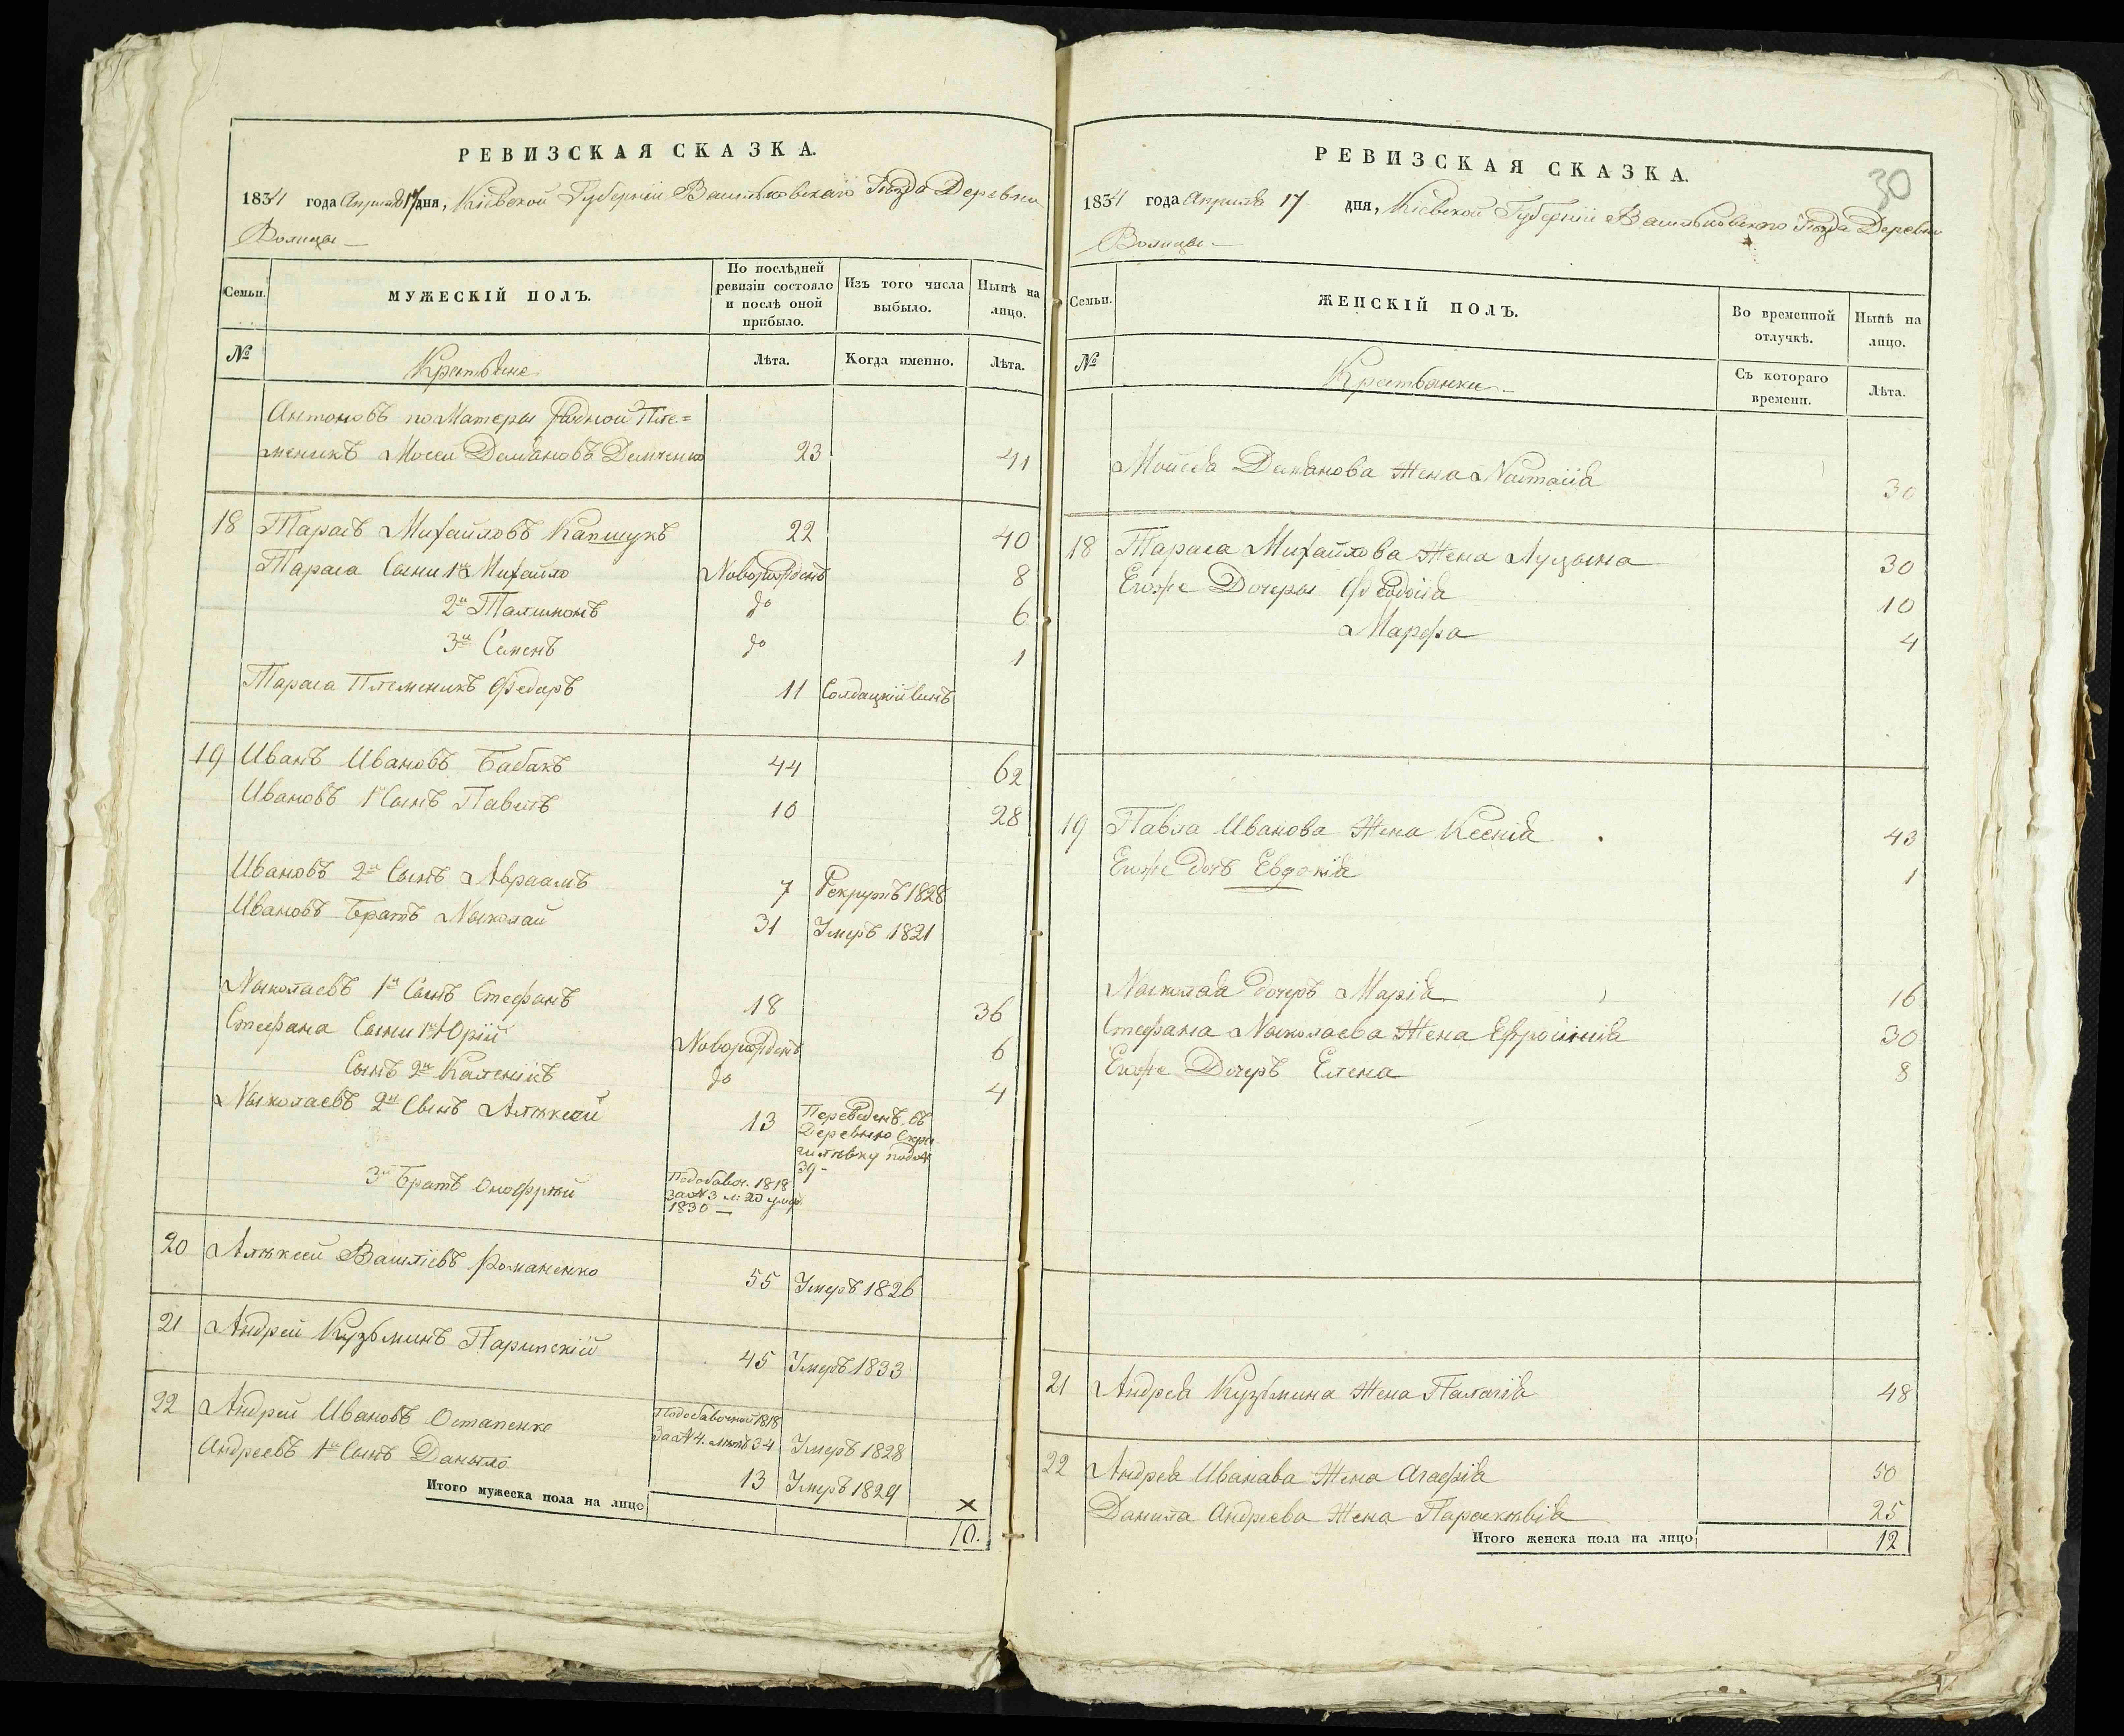 РЕВИЗСКАЯ СКАЗКА.
1834 года Апреля 17 дня, Кіевской Губерніи Васильковскаго Уѣзда Деревни
Волицы
Семьи.
МУЖЕСКІЙ ПОЛЪ.
По послѣдней ревизіи состояло и послѣ оной прибыло.
Изъ того числа выбыло.
Нынѣ на лицо.
№
Крестьяне
Лѣта.
Когда именно.
Лѣта.
Антоновъ по Матеры Родной Пле=
меникъ Мосей Демяновъ Демченко 23 41
18 Тарасъ Михайловъ Капшукъ 22 40
Тараса Сыни 1й Михайло Новорожденъ 8
2й Талимонъ до 6
3й Семенъ до 1
Тараса Племеникъ Федоръ 11 Солдацкій Синъ
19 Иванъ Ивановъ Бабакъ 44 62
Ивановъ 1й Сынъ Павелъ 10 28
Ивановъ 2й Сынъ Авраамъ 7 Рекрутъ 1828
Ивановъ Братъ Николай 31 Умеръ 1821
Николаевъ 1й Сынъ Стефанъ 18 36
Стефана Сыни 1й Юрій Новорожденъ 6
Сынъ 2й Каленикъ до 4
Николаевъ 2й Сынъ Алѣксей 13 Переведенъ въ
Деревню
под №
39 -
3й Братъ Онофрѣй Подобавоч. 1818
за № 3 л: 20 умер
1830 —
20 Алѣксей Василіевъ Романенко 55 Умеръ 1826
21 Андрей Кузьминъ Парипскій 45 Умеръ 1833
22 Андрей Ивановъ Остапенко Подобавочной 1818
за № 4. лѣтъ 34 Умеръ 1828
Андреевъ 1й Сынъ Даныло 13 Умеръ 1829
Итого мужеска пола на лицо × 10.
30
РЕВИЗСКАЯ СКАЗКА.
1834 года Апреля 17 дня, Кіевской Губерніи Васильковского Уѣзда Деревни
Волицы
Семьи.
ЖЕНСКІЙ ПОЛЪ.
Во временной отлучкѣ.
Нынѣ на лицо.
№
Крестьянки
Съ котораго времени.
Лѣта.
Мойсея Демянова Жена Настасія 30
18 Тараса Михайлова Жена Луцына 30
Егоже Дочеры Феодосія 10
Марфа 4
19 Павла Иванова Жена Ксенія 43
Егоже дочъ Евдокія 1
Николая дочеръ Марія 16
Стефана Николаева Жена Ефросинія 30
Егоже Дочеръ Елена 8
21 Андрея Кузьмина Жена Палагія 48
22 Андрея Иванава Жена Агафія 50
Данила Андреева Жена Параскѣвія 25
Итого женска пола на лицо 12